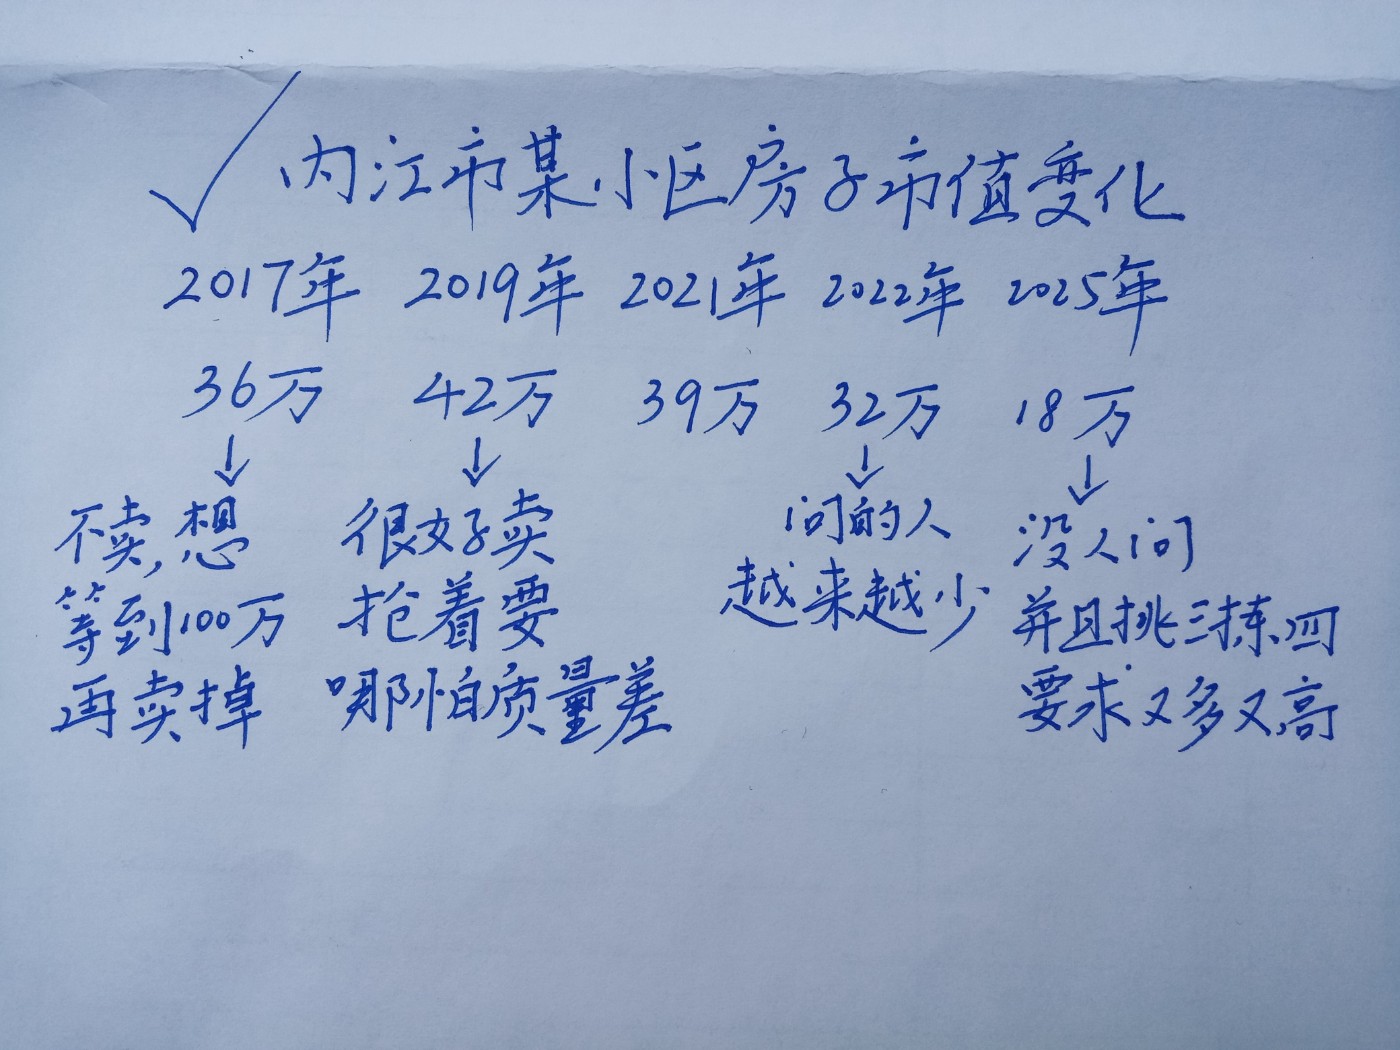 内江市某小区房子市值变化
2017年 2019年 2021年 2022年 2025年
36万 42万 39万 32万 18万
不卖,想
等到100万
再卖掉
很好卖
抢着要
哪怕质量差
问的人
越来越少
没人问
并且挑三拣四
要求又多又高